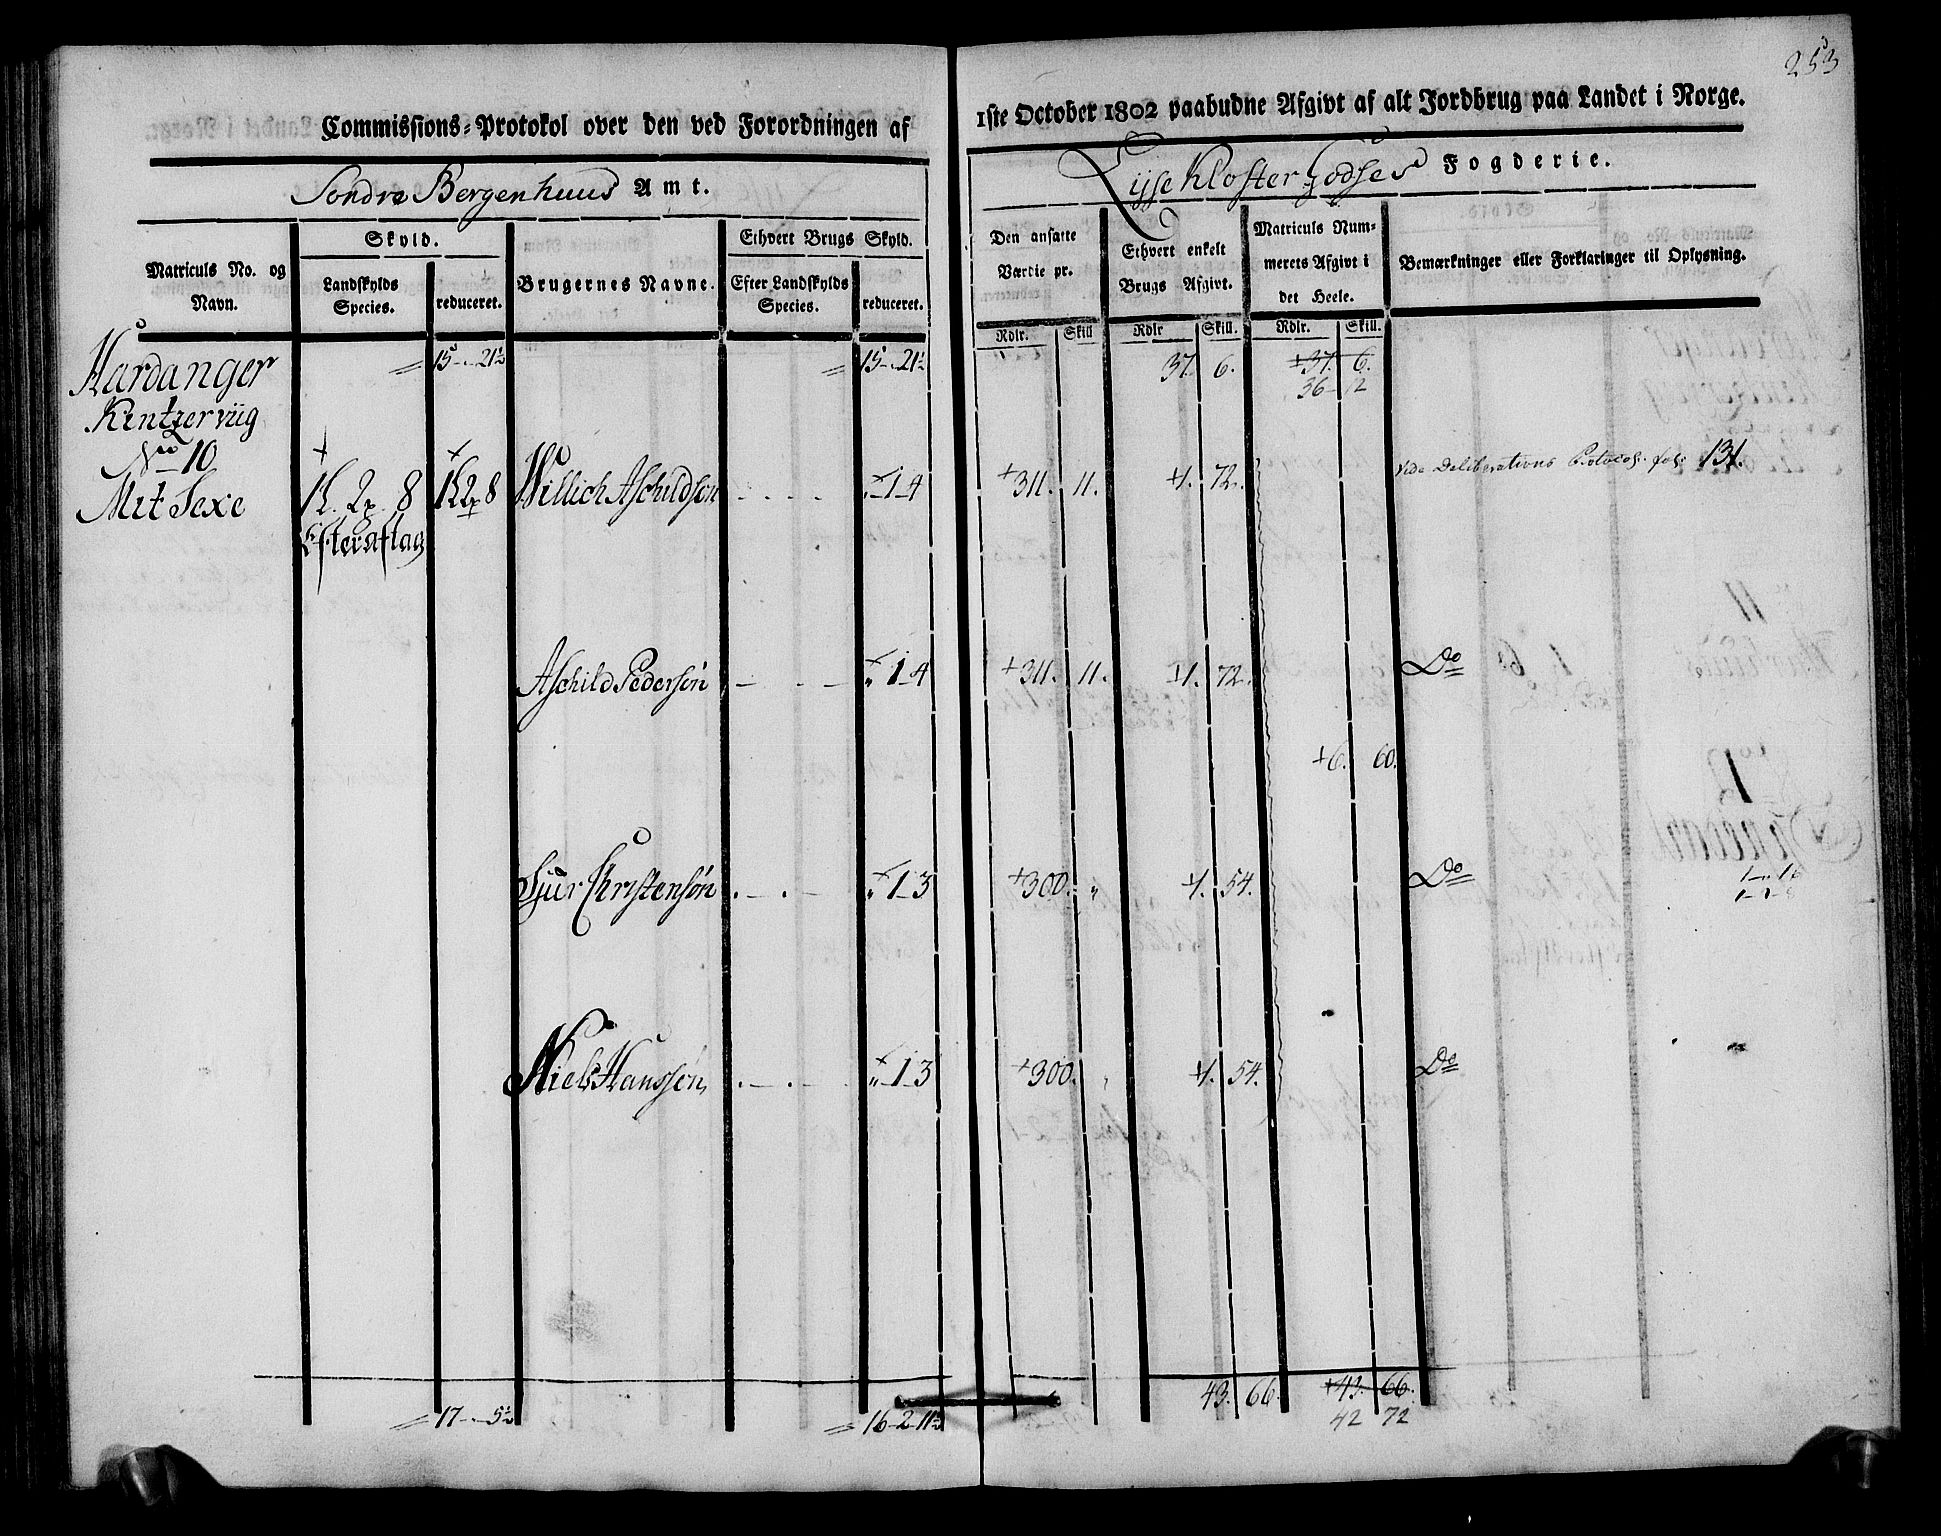 253
Commissions-Protokol over den ved Forordningen af 1ste October 1802 paabudne Afgivt af alt Jordbrug paa Landet i Norge.
Søndre Bergenhuus Amt.
Lysse Kloster Godses Fogderie.
Matriculs No. og Navn.
Skyld.
Landskylds Species.
reduceret.
Brugernes Navne.
Ethvert Brugs Skyld.
Efter Landskylds Species.
reduceret.
Den ansatte Værdie pr.
Rdlr. Skill
Ethvert enkelt Brugs Afgivt.
Rdlr Skill.
Matriculs Nummerets Afgivt i det Heele.
Rdlr. Skill.
Bemærkninger eller Forklaringer til Oplysning.
Hardanger 15 - 21½ 15 - 21½ 37. 6. +37. 6.
36 - 12
Kintzerviig
No 10
Mit Sexe 1 2 8 1 2 8 Willich Aschildsøn 1-4 +311. 11. +1. 72. Vide Deliberations Protocol. fol: 131.
Efter aftag
Aschild Pedersøn 1-4 +311. 11. +1. 72. Do
+6. 60.
Sjur Christensøn 1-3 +300. " +1. 54. Do
Niels Hanssøn, 1-3 +300. " +1. 54. Do
43. 66. +43. 66.
17 - 5½ 16-2-11½ 42 72